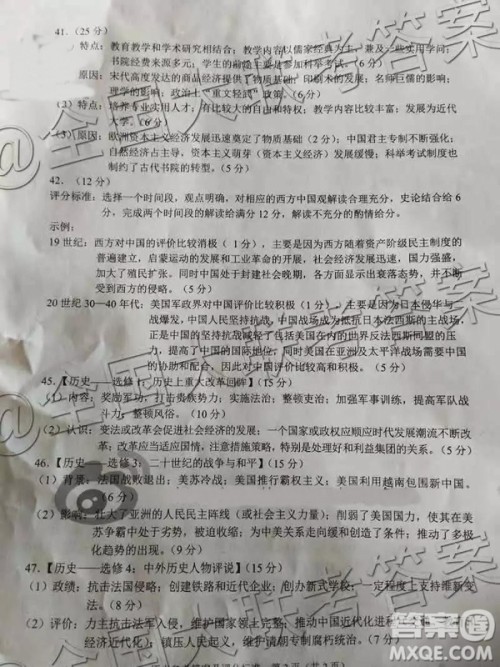 41.（25分）
特点：教育教学和学术研究相结合；教学内容以儒家经典为主，兼及一些实用学问；
书院经费来源多元；学生的前途主要是参加科举考试。（6分）
原因：宋代高度发达的商品经济提供了物质基础；印刷术的发展；名师巨儒的影响；
理学的影响；政治上“重文轻武”政策。（6分）
（2）特点：培养专业实用人才；有比较大的自由和特权；教学内容比较丰富；发展为近代
大学。（6分）
（3）原因：欧洲资本主义迅速发展奠定了物质基础（2分）；中国君主专制不断强化；
自然经济占主导，资本主义萌芽（资本主义经济）发展缓慢；科举考试制度也
制约了古代书院的转型。（5分）
42.（12分）
评分标准：选择一个时间段，观点明确，对相应的西方中国观解读合理充分，史论结合给6
分，完成两个时间段的解读给满分12分，解读不充分的酌情给分。
示例：
19世纪：西方对中国的评价比较消极（1分），主要是因为西方随着资产阶级民主制度的
普遍建立，启蒙运动的发展和工业革命的开展，社会经济发展迅速，国力强盛，
加大了殖民扩张。同时中国处于封建社会晚期，各方面显示出衰落态势，并不断
受到西方的侵略。（5分）
20世纪30—40年代：美国军政界对中国评价比较积极（1分），主要是因为日本侵华与二
战爆发，中国人民坚持抗战，中国战场成为抵抗日本法西斯的主战场，
正是中国的坚持抗战减轻了包括美国在内的世界反法西斯同盟的压
力，提高了中国的国际地位；同时美国在亚洲及太平洋战场需要中国
的协助和配合，因此对中国评价比较高和积极。（5分）
45.【历史——选修1：历史上重大改革回眸】（15分）
（1）内容：奖励军功；打击贵族势力；实施法治；整顿吏治；加强军事训练，提高军队战
斗力；整顿风俗。（10分）
（2）认识：变法或改革会促进社会经济的发展；一个国家或政权应顺应时代发展潮流不断
改革；改革应当适应国情，注意措施策略，特别是处理好和利益集团的关系。（5分）
46.【历史——选修3：二十世纪的战争与和平】（15分）
（1）背景：法国战败退出；美苏冷战；美国推行霸权主义；美国利用越南包围新中国。
（6分）
（2）影响：壮大了亚洲的人民民主阵线（或者社会主义力量）；削弱了美国国力，使其在美苏
争霸中处于劣势，被迫收缩；为中美关系走向缓和创造了条件；推动了多极
化趋势的出现。（9分）
47.【历史——选修4：中外历史人物评说】（15分）
（1）政绩：抗击法国侵略；创建铁路和近代企业；创办新式学校；一定程度上支持维新变
法。（8分）
（2）评价：力主抗击法军入侵，维护国家领土主权；推动中国近代化进程
经济近代化）；镇压人民起义，维护清朝专制腐朽统治。（7分）
@全国大联考答案
MXQE.COM